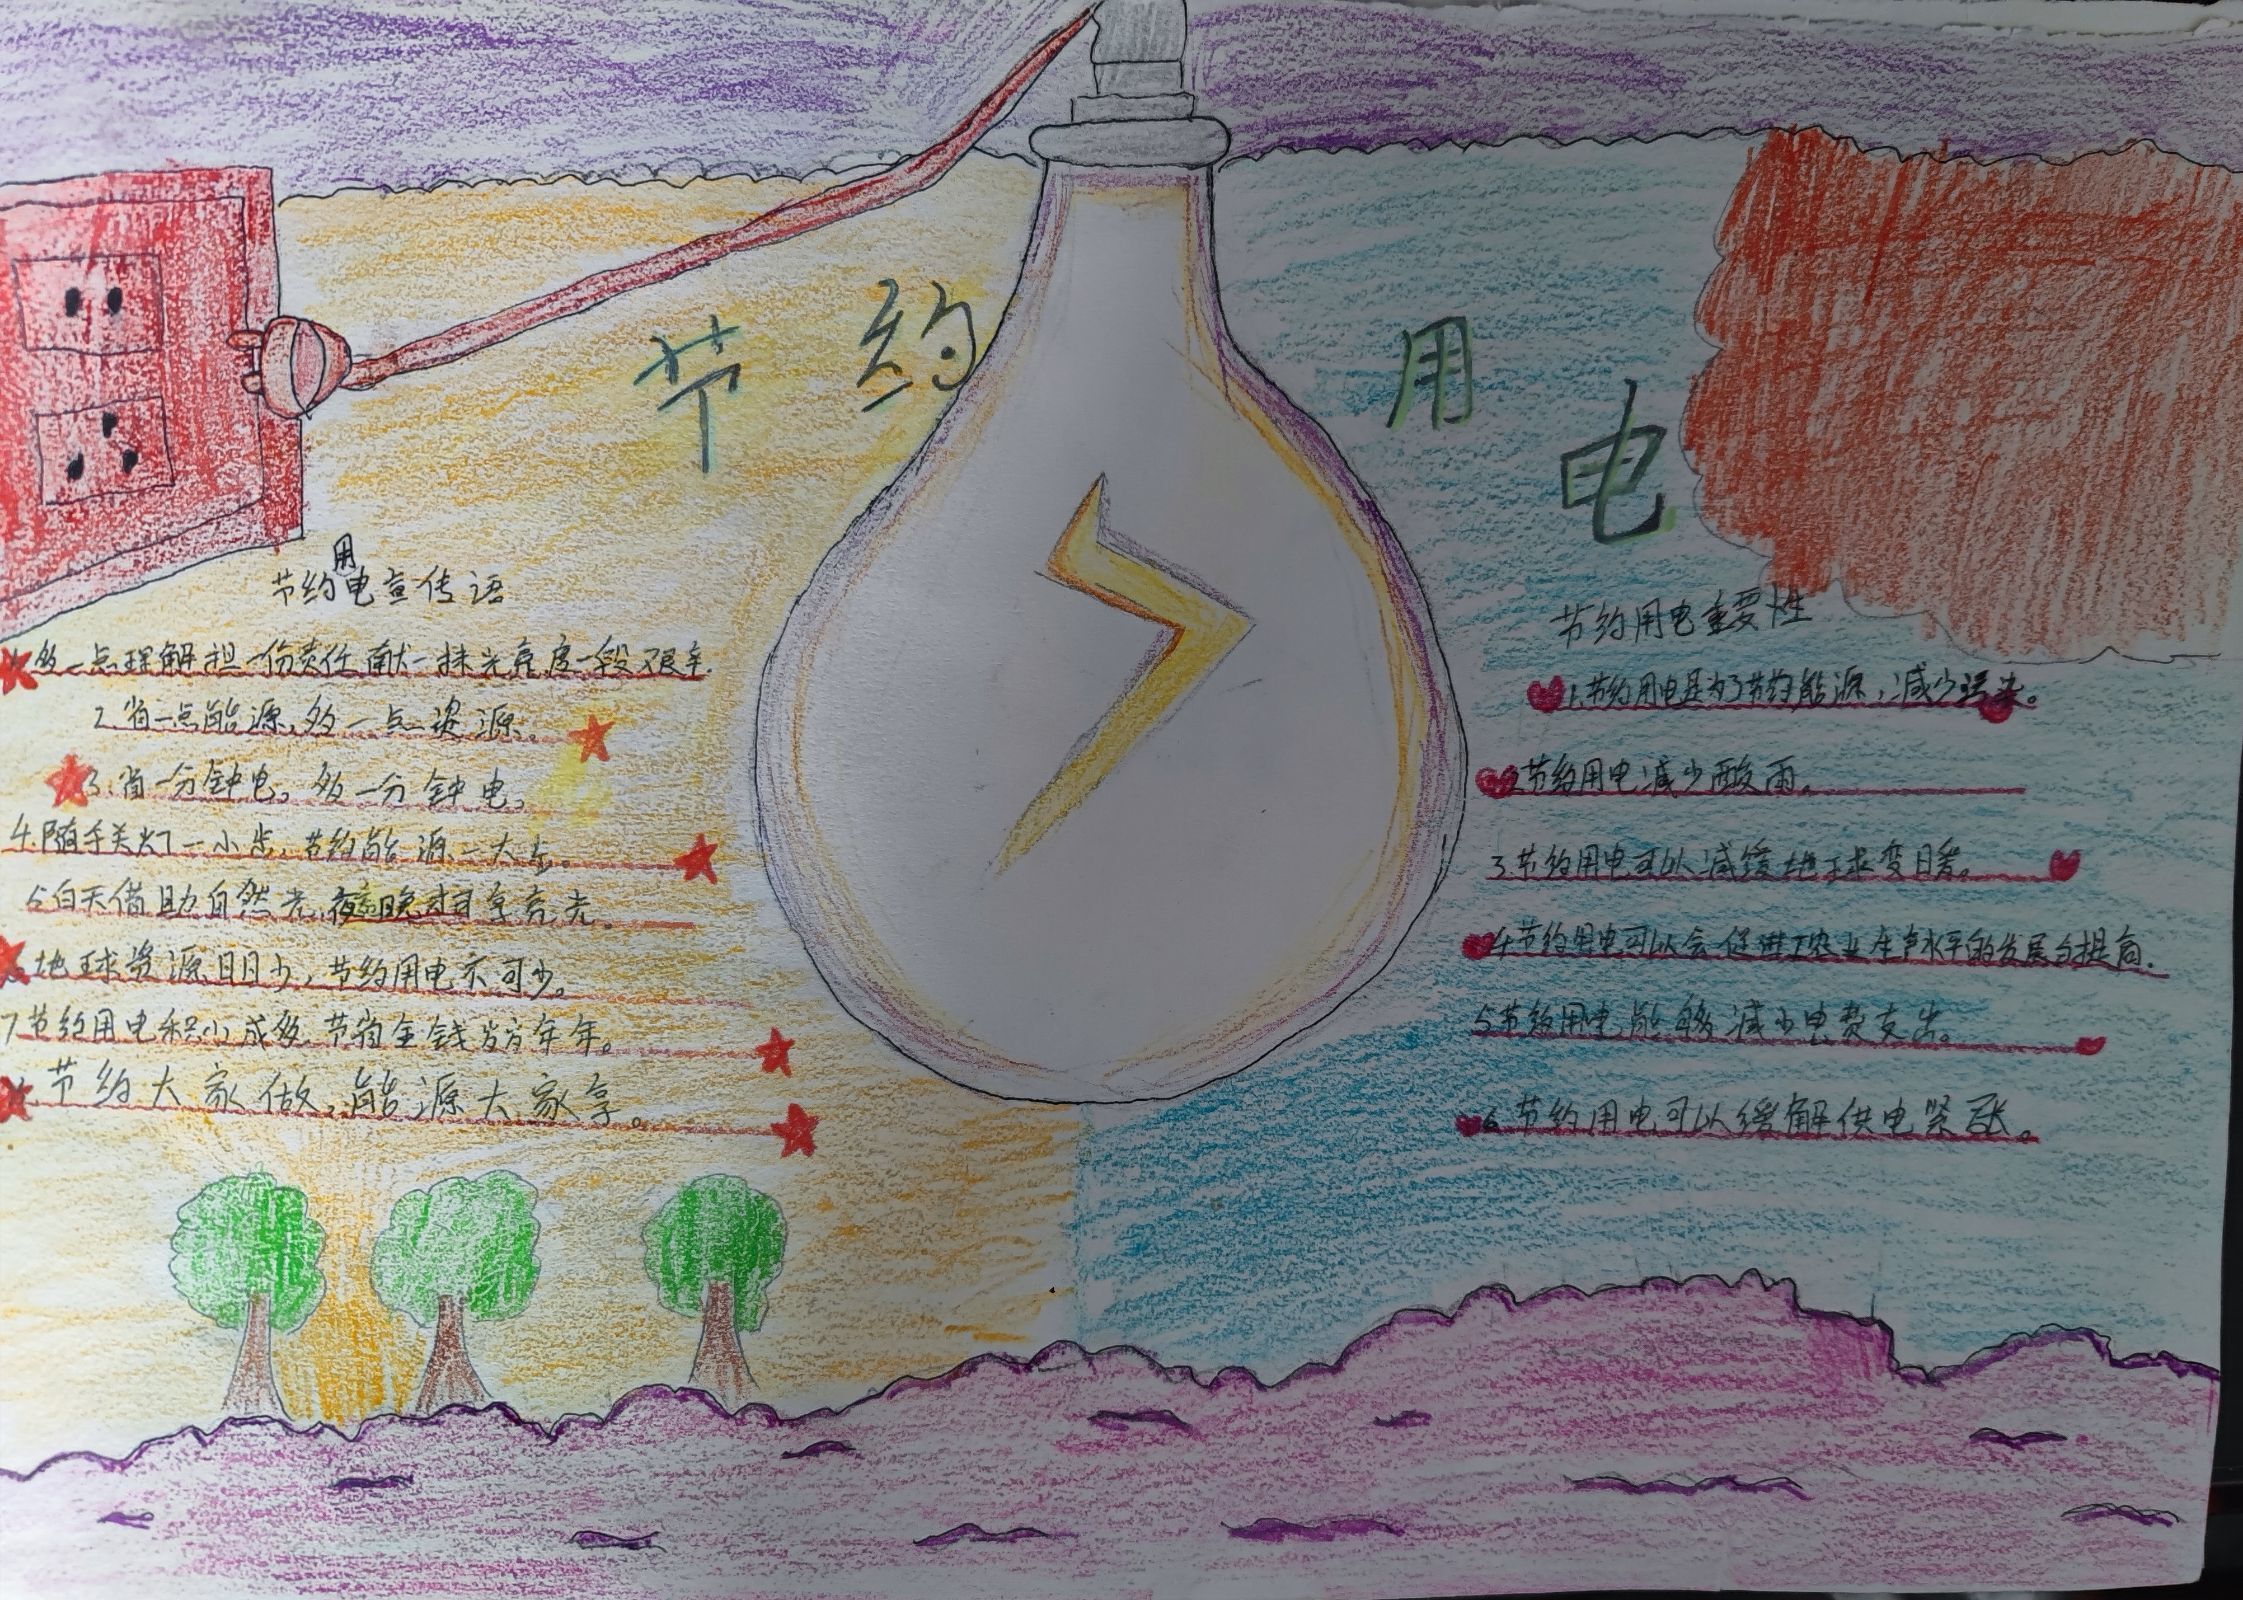 节约用电
节约用电宣传语
1.多一点理解担一份责任献一抹光亮度一段艰辛.
2.省一点能源,多一点资源。
3.省一分钟电,多一分钟电,
4.随手关灯一小步,节约能源一大步。
5白天借助自然光,夜晚才享亮光.
地球资源日日少,节约用电不可少。
7节约用电积小成多,节省金钱岁岁年年。
节约大家做,能源大家享。
节约用电重要性
1.节约用电是为了节约能源,减少污染。
2节约用电减少酸雨。
3.节约用电可以减缓地球变暖。
4节约用电可以会促进工农业生产水平的发展与提高.
5节约用电能够减少电费支出。
6节约用电可以缓解供电紧张。